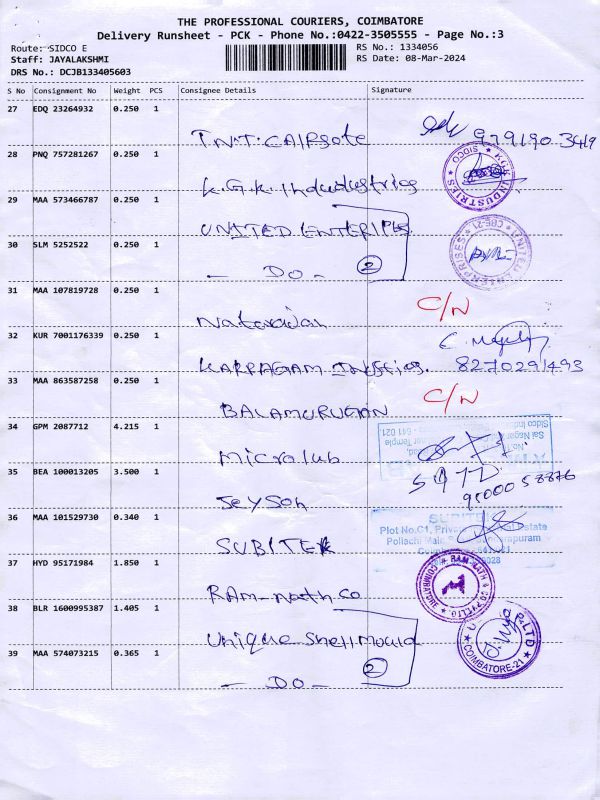 THE PROFESSIONAL COURIERS, COIMBATORE
Delivery Runsheet - PCK - Phone No.:0422-3505555 - Page No.:3
Route: SIDCO E
RS No.: 1334056
Staff: JAYALAKSHMI
RS Date: 08-Mar-2024
DRS No.: DCJB133405603
S No Consignment No Weight PCS Consignee Details Signature
27 EDQ 23264932 0.250 1
28 PNQ 757281267 0.250 1
K.G.K. Industries
29 MAA 573466787 0.250 1
UNITED ENTERIPES
30 SLM 5252522 0.250 1
- DO - 2
31 MAA 107819728 0.250 1 C/N
Natarajan
32 KUR 7001176339 0.250 1
KARPAGAM 8270291493
33 MAA 863587258 0.250 1 C/N
BALAMURUGAN
34 GPM 2087712 4.215 1
Microlub
35 BEA 100013205 3.500 1
Jeyson
36 MAA 101529730 0.340 1
SUBITEK
37 HYD 95171984 1.850 1
RAM-nath co
38 BLR 1600995387 1.405 1
Unique Shell mould
39 MAA 574073215 0.365 1
- DO - 2